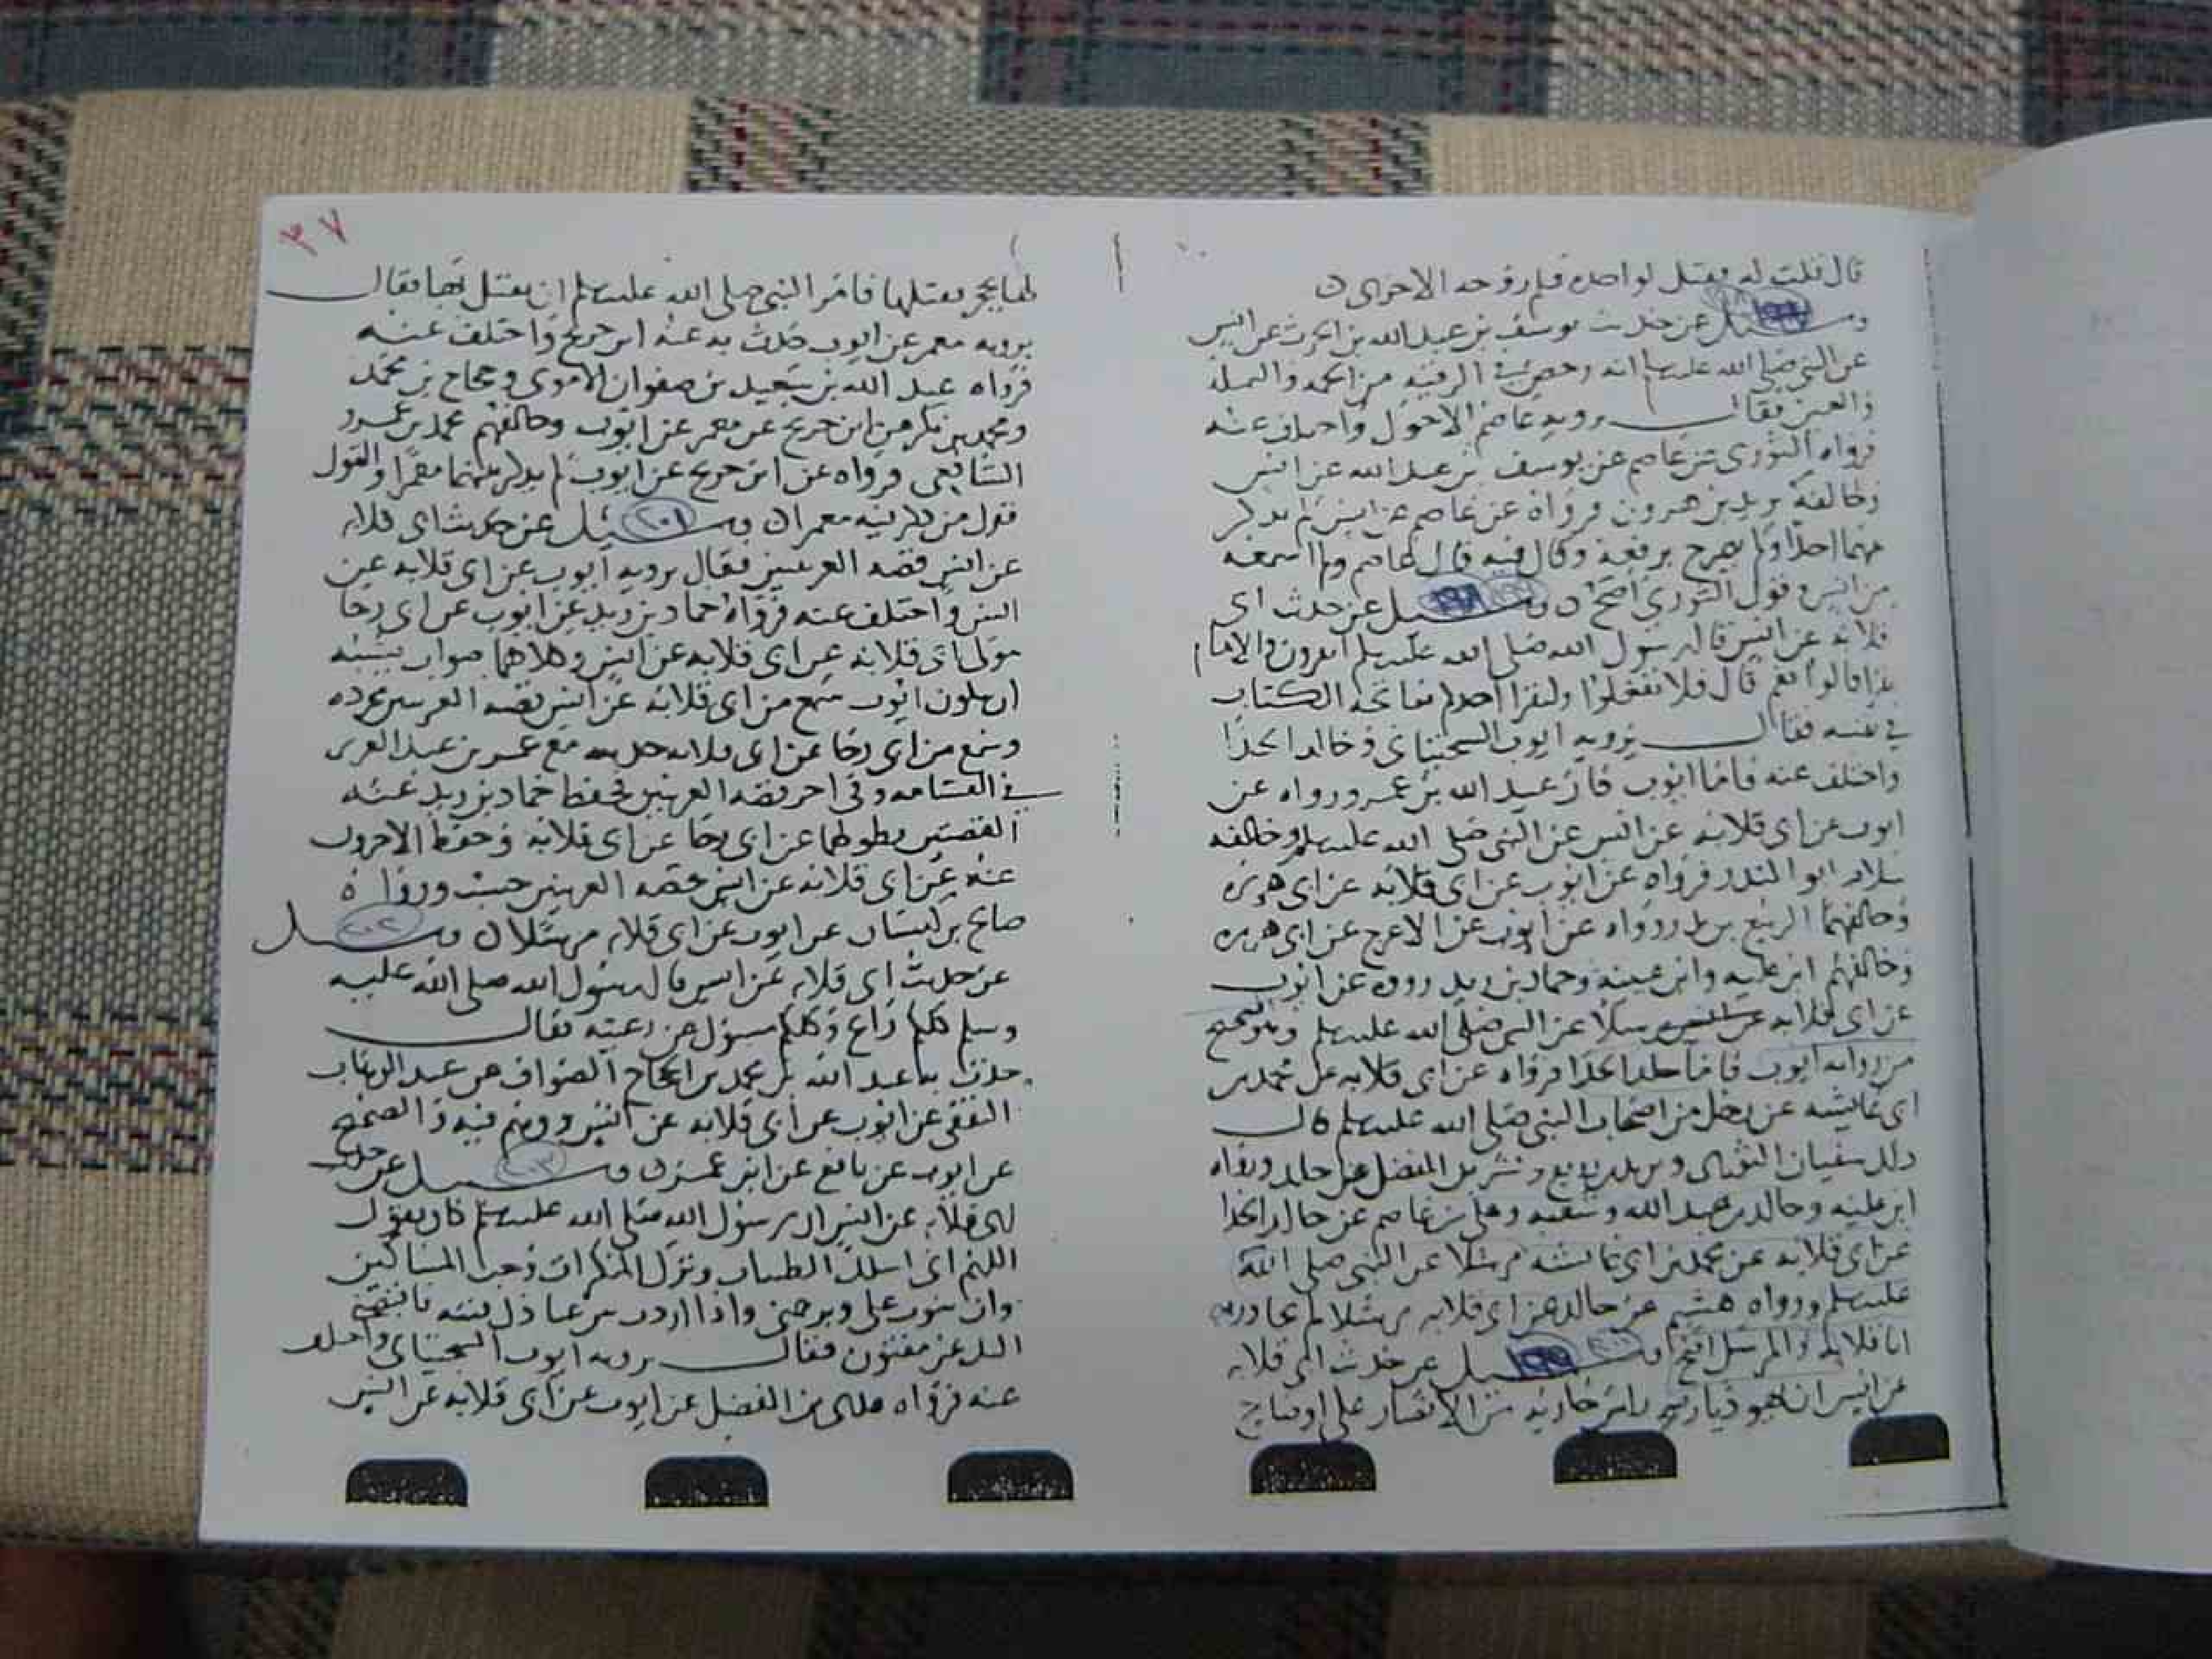 قال قلت له فقتل لواحده فلم رو حد الاخرى ن
وسئل عن حديث يوسف بن عبد الله بن الحرث عن انس
عن النبي صلى الله عليه انه رخص في الرقيه من الحمه والنمله
والعين فقال يرويه عاصم الاحول واختلف عنه
فرواه الثوري عن عاصم عن يوسف بن عبد الله عن انس
وخالفه يزيد بن هرون فرواه عن عاصم عن انس لم يذكر
بينهما احدا ولم يصرح برفعه وقال فيه قال عاصم ولم اسمعه
من انس وقول الثوري اصح ن وسئل عن حديث ابي
قلابه عن انس قال رسول الله صلى الله عليه وسلم اتقرون والامام
يقرا قالوا نعم قال فلا تفعلوا وليقرا احدكم بفاتحه الكتاب
في نفسه فقال يرويه ايوب السختياني وخالد الحذا
واختلف عنه فاما ايوب فان عبيد الله بن عمرو رواه عن
ايوب عن ابي قلابه عن انس عن النبي صلى الله عليه وسلم وخالفه
سلام ابو المنذر فرواه عن ايوب عن ابي قلابه عن ابي هريره
وخالفهما الربيع بن بدر رواه عن ايوب عن الاعرج عن ابي هريره
وخالفهم ابن عليه وابن عيينه وحماد بن زيد رووه عن ايوب
عن ابي قلابه مرسلا عن النبي صلى الله عليه وسلم وهو الصحيح
من روايه ايوب فاما خالد الحذا فرواه عن ابي قلابه عن محمد بن
ابي عايشه عن رجل من اصحاب النبي صلى الله عليه وسلم قال
ذلك سفيان الثوري ويزيد بن زريع وبشر بن المفضل عن خالد ورواه
ابن عليه وخالد بن عبد الله وشعبه وعلي بن عاصم عن خالد الحذا
عن ابي قلابه عن محمد بن ابي عايشه مرسلا عن النبي صلى الله
عليه وسلم ورواه هشيم عن خالد عن ابي قلابه مرسلا لم يجاوز به
ابا قلابه والمرسل اصح وسئل عن حديث ابي قلابه
عن انس ان يهوديا رضخ راس جاريه من الانصار على اوضاح
٣٧
لها بحجر فقتلها فامر النبي صلى الله عليه وسلم ان يقتل بها فقال
يرويه معمر عن ايوب حدث به عنه ابن جريج واختلف عنه
فرواه عبد الله بن سعيد بن صفوان الاموي وحجاج بن محمد
ومحمد بن بكر عن ابن جريج عن معمر عن ايوب وخالفهم محمد بن عمرو
اليافعي فرواه عن ابن جريج عن ايوب لم يذكر بينهما معمرا والقول
قول من ذكر فيه معمرا ن وسئل ٢٠١ عن حديث ابي قلابه
عن انس قصه العرنيين فقال يرويه ايوب عن ابي قلابه عن
انس واختلف عنه فرواه حماد بن زيد عن ايوب عن ابي رجا
مولى ابي قلابه عن ابي قلابه عن انس وكلاهما صواب يشبه
ان يكون ايوب سمع من ابي قلابه عن انس قصه العرنيين مجرده
وسمع من ابي رجا عن ابي قلابه حديثه مع عمر بن عبد العزيز
في القسامه وفي اخره قصه العرنيين فحفظ حماد بن زيد عنه
القصتين بطولهما عن ابي رجا عن ابي قلابه وحفظ الاخرون
عنه عن ابي قلابه عن انس قصه العرنيين حسب ورواه
صالح بن كيسان عن ايوب عن ابي قلابه مرسلا ن وسئل ٢٠٢
عن حديث ابي قلابه عن انس قال رسول الله صلى الله عليه
وسلم كلكم راع وكلكم مسؤل عن رعيته فقال
حدث به عبد الله بن محمد بن الحجاج الصواف عن عبد الوهاب
الثقفي عن ايوب عن ابي قلابه عن انس ووهم فيه والصحيح
عن ايوب عن نافع عن ابن عمر ن وسئل ٢٠٣ عن حديث
ابي قلابه عن انس ان رسول الله صلى الله عليه وسلم كان يقول
اللهم اني اسلك الطيبات وترك المنكرات وحب المساكين
وان تتوب علي وترحمني واذا اردت بين عبادك فتنه فاقبضني
اليك غير مفتون فقال يرويه ايوب السختياني واختلف
عنه فرواه عدي بن الفضل عن ايوب عن ابي قلابه عن انس